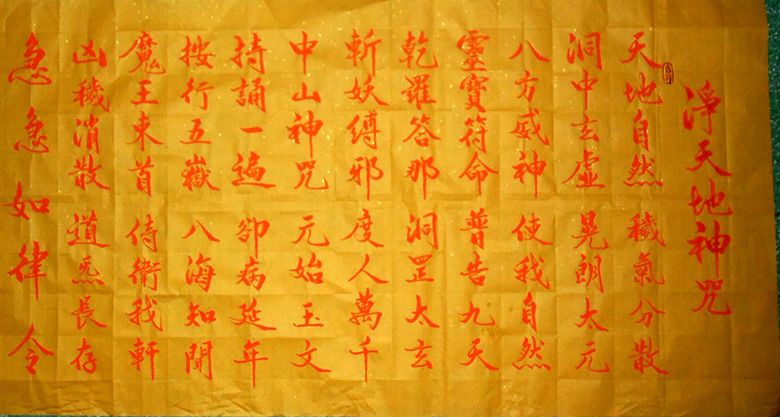 淨天地神咒
天地自然穢氣分散
洞中玄虛晃朗太元
八方威神使我自然
靈寶符命普告九天
乾羅答那洞罡太玄
斬妖縛邪度人萬千
中山神咒元始玉文
持誦一遍卻病延年
按行五嶽八海知聞
魔王束首侍衛我軒
凶穢消散道炁長存
急急如律令